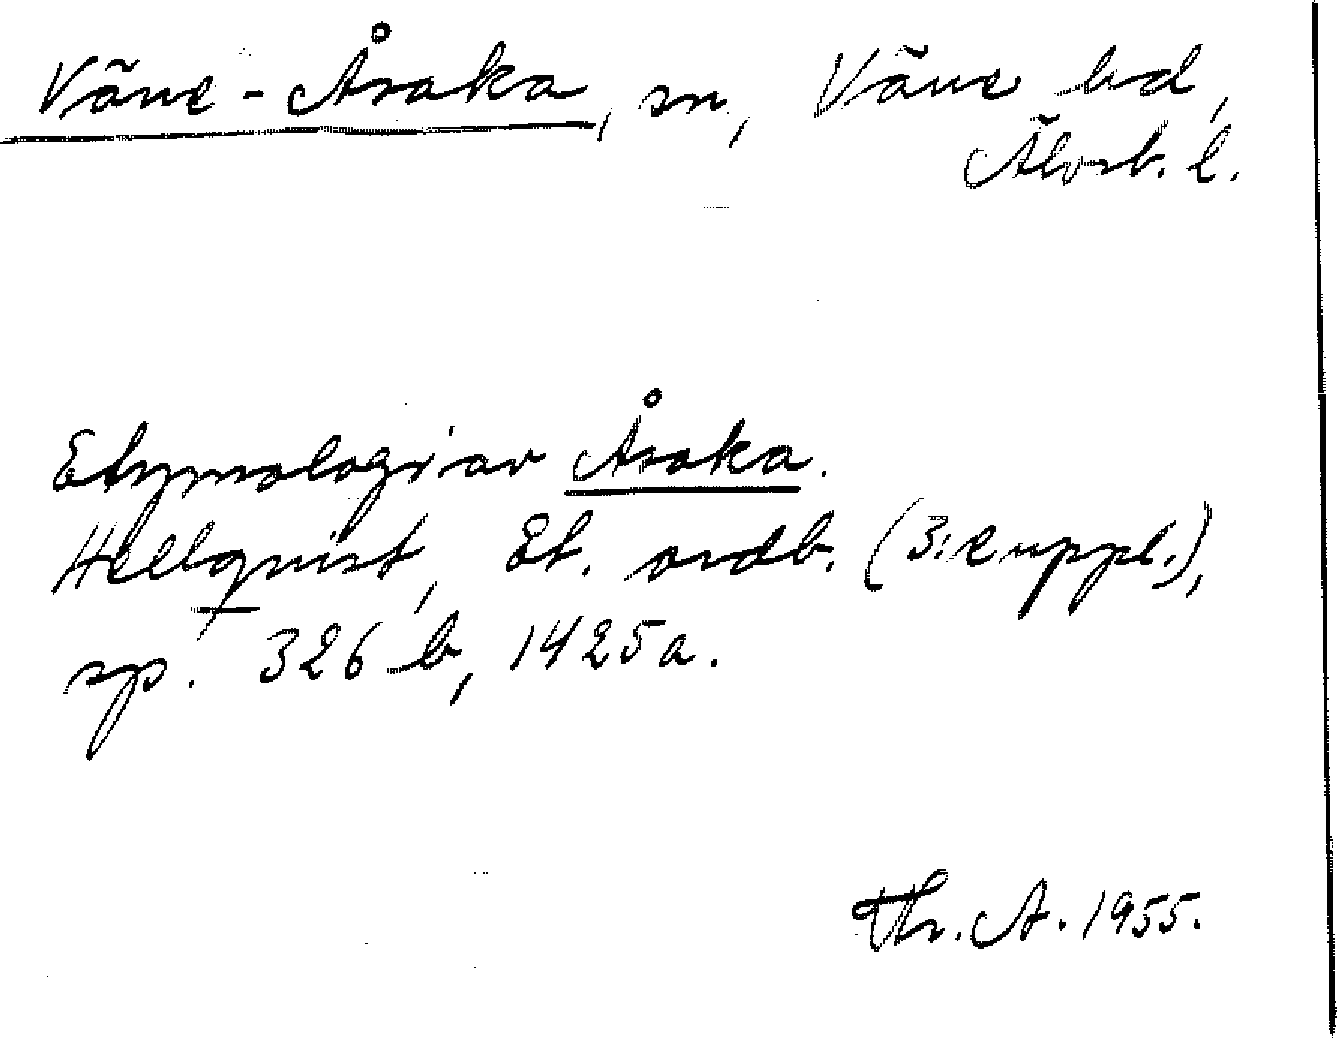 Väne-Åsaka, sn, Väne hd,
Älvsb. l.
Etymologi av Åsaka.
Hellquist, Et. ordb. (3:e uppl.),
sp. 326 b, 1425a.
Th. A. 1955.